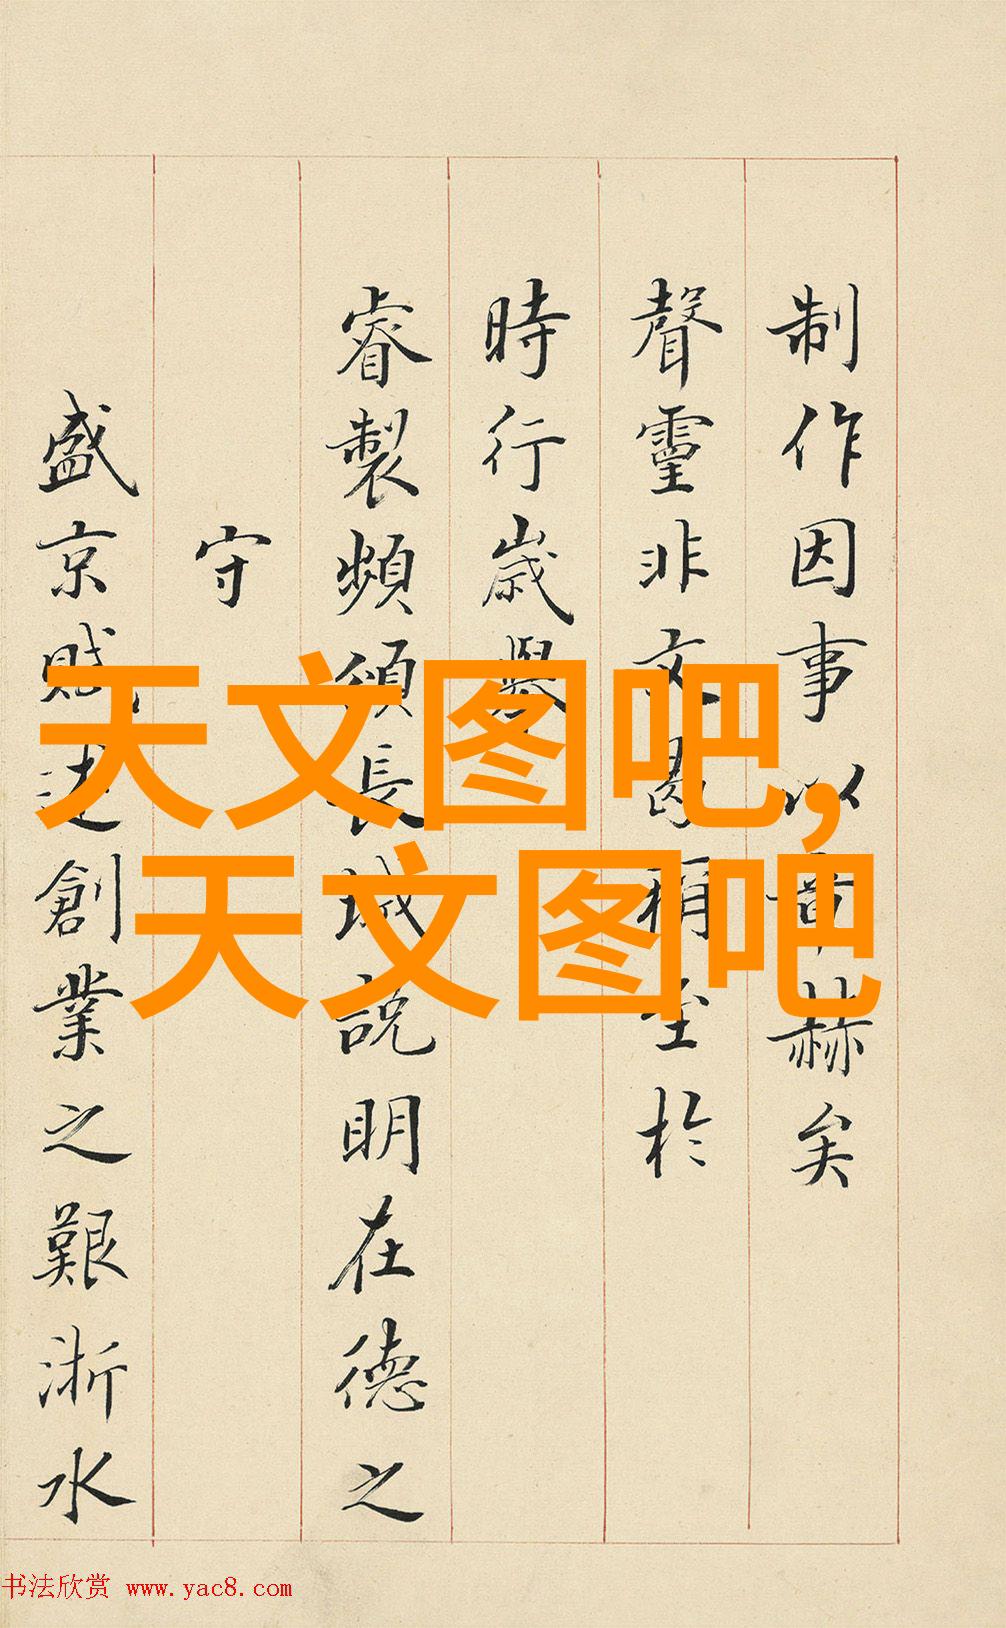 制作因事以章赫矣
聲靈非文曷稱至於
時行歲舉
睿製頻頒長城說明在德之
守
盛京賦述創業之艱浙水
天文图吧,
天文图吧
书法欣赏 www.yac8.com